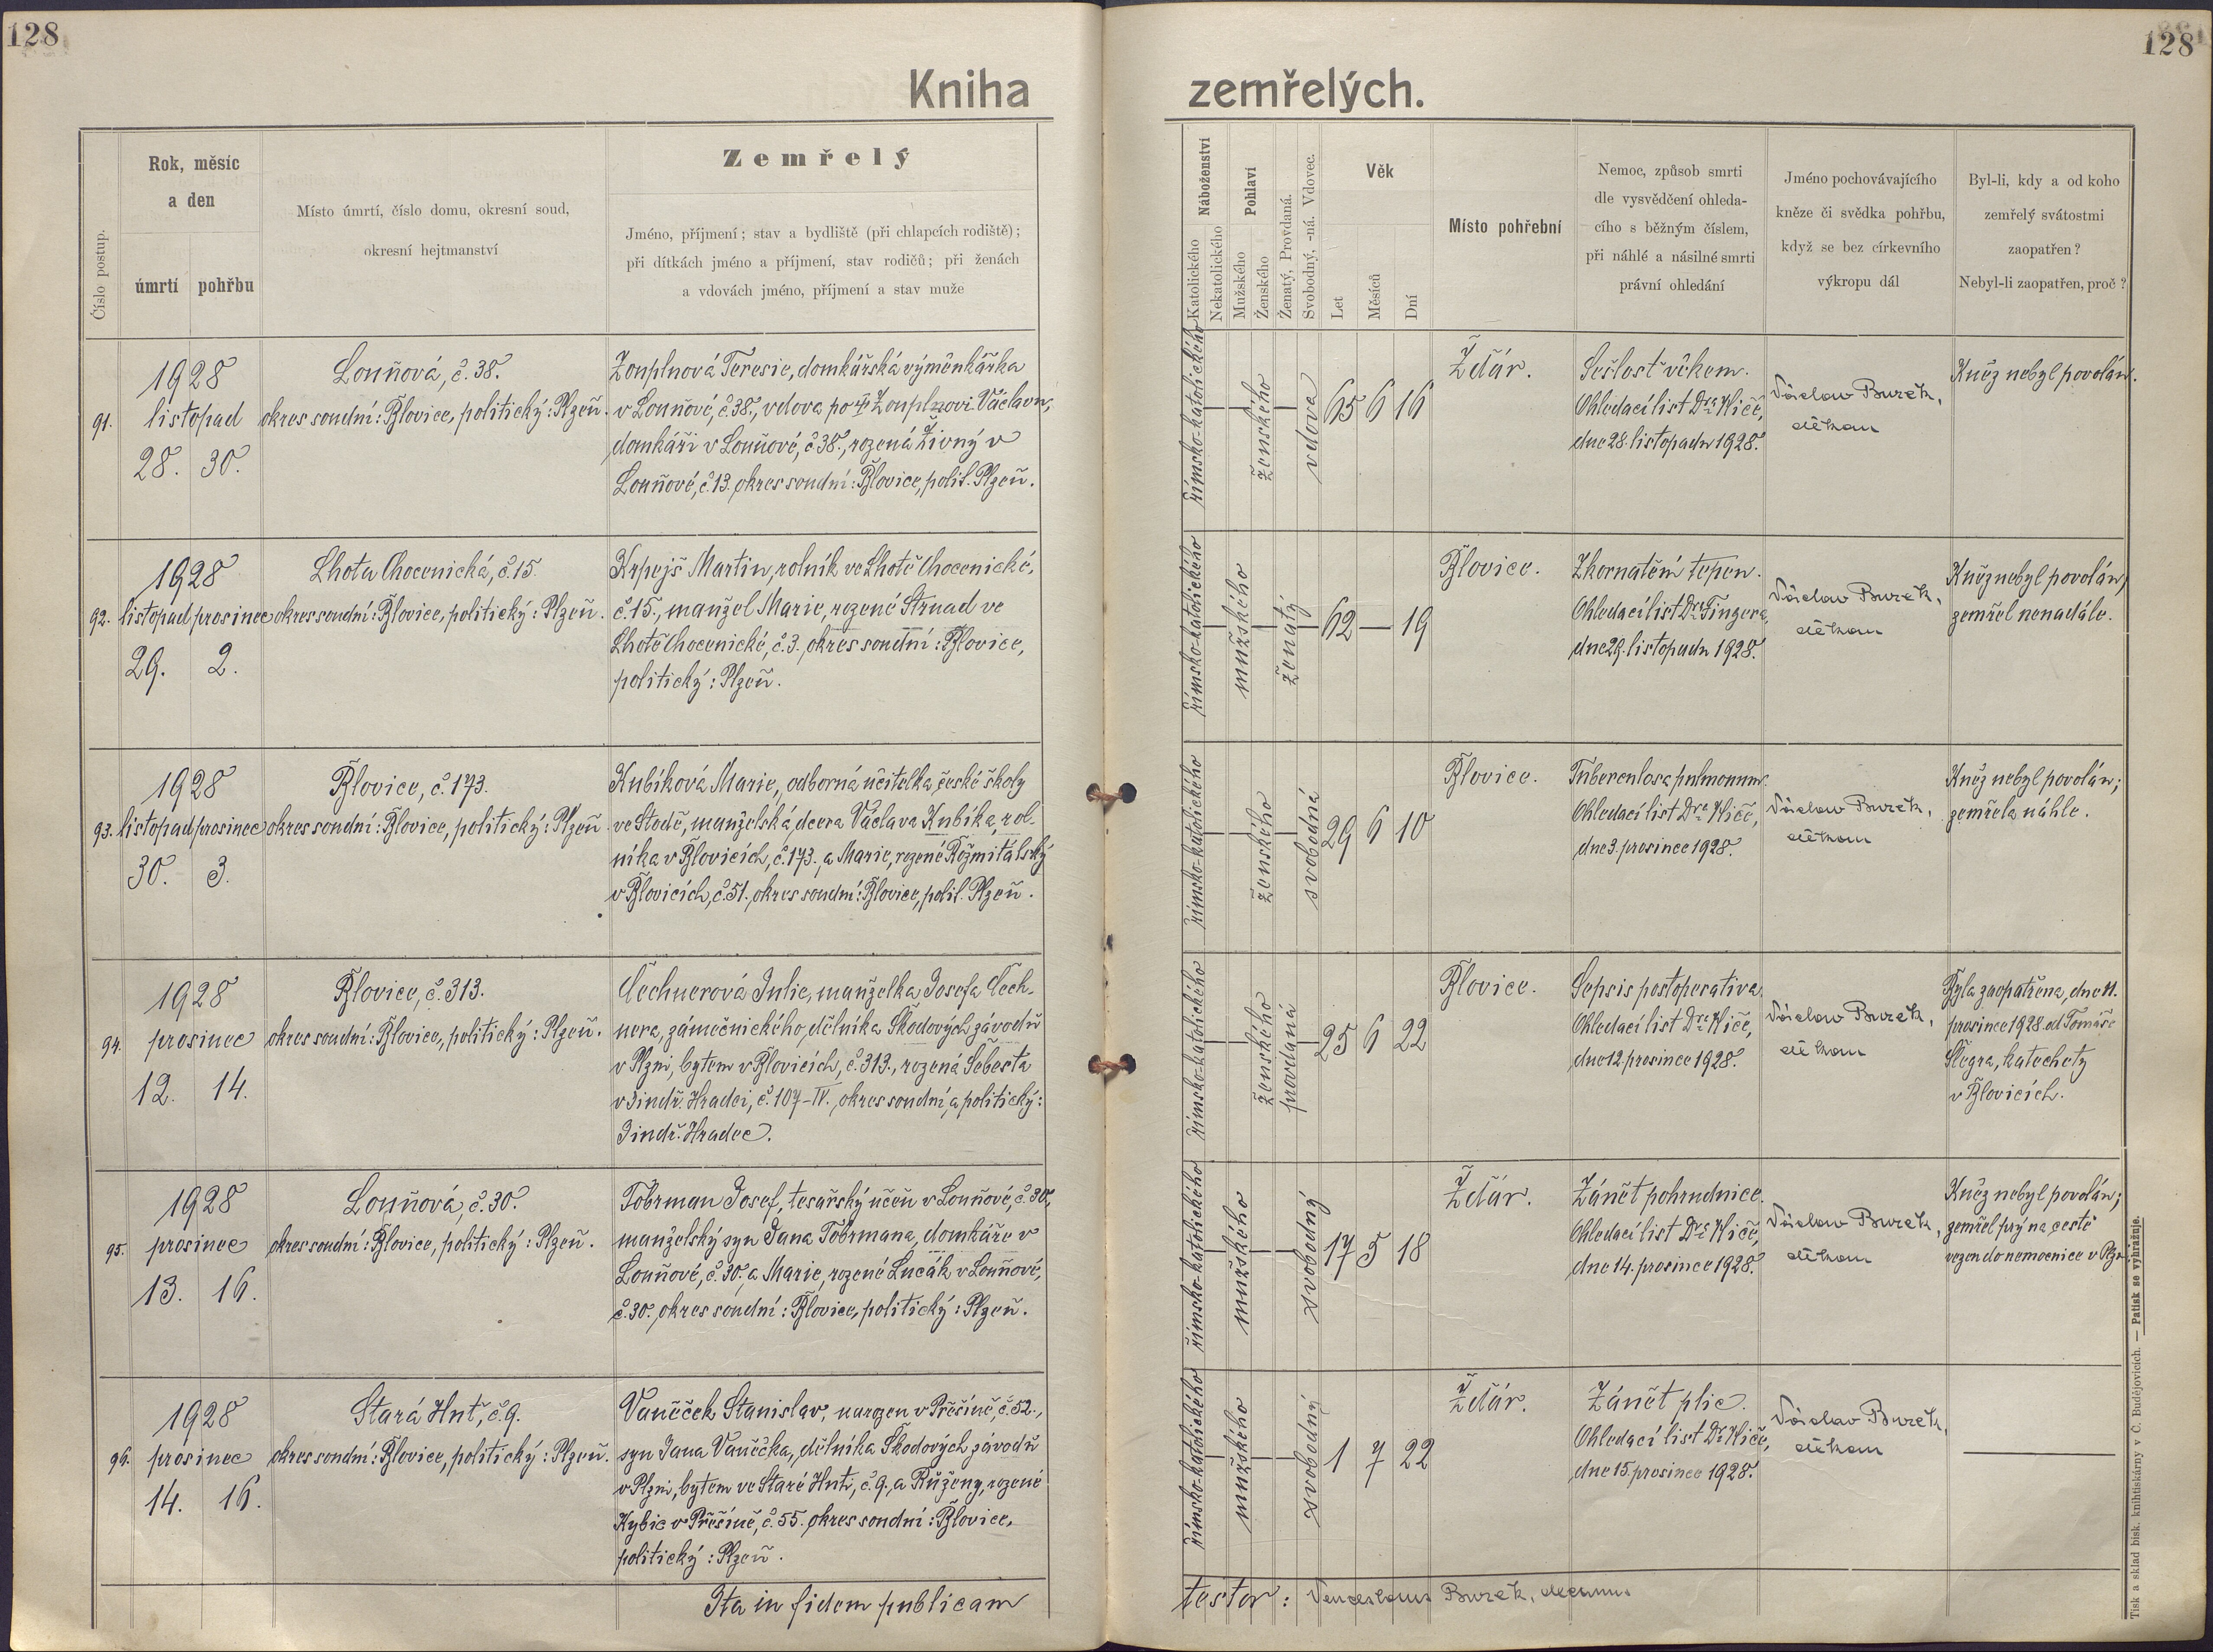 128
128
Kniha zemřelých.
Číslo postup.
Rok, měsíc
a den
úmrtí
pohřbu
Místo úmrtí, číslo domu, okresní soud,
okresní hejtmanství
Zemřelý
Jméno, příjmení; stav a bydliště (při chlapcích rodiště);
při dítkách jméno a příjmení, stav rodičů; při ženách
a vdovách jméno, příjmení a stav muže
Náboženství
Katolického
Nekatolického
Pohlaví
Mužského
Ženského
Ženatý, Provdaná.
Svobodný, -ná. Vdovec.
Věk
Let
Měsíců
Dní
Místo pohřební
Nemoc, způsob smrti
dle vysvědčení ohleda-
cího s běžným číslem,
při náhlé a násilné smrti
právní ohledání
Jméno pochovávajícího
kněze či svědka pohřbu,
když se bez církevního
výkropu dál
Byl-li, kdy a od koho
zemřelý svátostmi
zaopatřen?
Nebyl-li zaopatřen, proč?
91.
1928
listopad
28. 30.
Louňová, č. 38.
okres soudní: Blovice, politický: Plzeň.
Teresie, domkářská výměnkářka
v Louňové, č. 38., vdova po † Václavu,
domkáři v Louňové, č. 38., rozená Živný v
Louňové, č. 13. okres soudní: Blovice, polit. Plzeň.
římsko-katolického
ženského
vdova
65 6 16
Ždár.
Sešlost věkem.
Ohledací list Dra Kliče,
dne 28. listopadu 1928.
Václav Burek,
děkan
Kněz nebyl povolán.
92.
1928
listopad prosinec
29. 2.
Lhota Chocenická, č. 15.
okres soudní: Blovice, politický: Plzeň.
Krpejš Martin, rolník ve Lhotě Chocenické,
č. 15., manžel Marie, rozené Strnad ve
Lhotě Chocenické, č. 3. okres soudní: Blovice,
politický: Plzeň.
římsko-katolického
mužského
ženatý
62 — 19
Blovice.
Zkornatění tepen.
Ohledací list Dra Fingera,
dne 29. listopadu 1928.
Václav Burek,
děkan
Kněz nebyl povolán,
zemřel nenadále.
93.
1928
listopad prosinec
30. 3.
Blovice, č. 173.
okres soudní: Blovice, politický: Plzeň
Kubíková Marie, odborná učitelka české školy
ve Stodě, manželská dcera Václava Kubíka, rol-
níka v Blovicích, č. 173. a Marie, rozené Rožmitálský
v Blovicích, č. 51. okres soudní: Blovice, polit. Plzeň.
římsko-katolického
ženského
svobodná
29 6 10
Blovice.
Tuberculosa pulmonum.
Ohledací list Dra Kliče,
dne 3. prosince 1928.
Václav Burek,
děkan
Kněz nebyl povolán;
zemřela náhle.
94.
1928
prosinec
12. 14.
Blovice, č. 313.
okres soudní: Blovice, politický: Plzeň.
Čechnerová Julie, manželka Josefa Čech-
nera, zámečnického dělníka Škodových závodů
v Plzni, bytem v Blovicích, č. 313., rozená Šebesta
v Jindř. Hradci, č. 107-IV., okres soudní a politický:
Jindř. Hradec.
římsko-katolického
ženského
provdaná
25 6 22
Blovice.
Sepsis postoperativa.
Ohledací list Dra Kliče,
dne 12. prosince 1928.
Václav Burek,
děkan
Byla zaopatřena, dne 11.
prosince 1928 od Tomáše
Šlégra, katechety
v Blovicích.
95.
1928
prosinec
13. 16.
Louňová, č. 30.
okres soudní: Blovice, politický: Plzeň.
Tobrman Josef, tesařský učeň v Louňové, č. 30.,
manželský syn Jana Tobrmana, domkáře v
Louňové, č. 30., a Marie, rozené Lucák v Louňové,
č. 30. okres soudní: Blovice, politický: Plzeň.
římsko-katolického
mužského
svobodný
17 5 18
Ždár.
Zánět pohrudnice.
Ohledací list Dra Kliče,
dne 14. prosince 1928.
Václav Burek,
děkan
Kněz nebyl povolán;
zemřel prý na cestě
vezen do nemocnice v Plzni.
96.
1928
prosinec
14. 16.
Stará Huť, č. 9.
okres soudní: Blovice, politický: Plzeň.
Vaněček Stanislav, narozen v Přešíně, č. 52.,
syn Jana Vaněčka, dělníka Škodových závodů
v Plzni, bytem ve Staré Huti, č. 9., a Růženy, rozené
Kybic v Přešíně, č. 55. okres soudní: Blovice,
politický: Plzeň.
římsko-katolického
mužského
svobodný
1 7 22
Ždár.
Zánět plic.
Ohledací list Dr. Kliče,
dne 15. prosince 1928.
Václav Burek,
děkan
Ita in fidem publicam testor: Venceslaus Burek, decanus
Tisk a sklad bisk. knihtiskárny v Č. Budějovicích. — Patisk se vyhražuje.